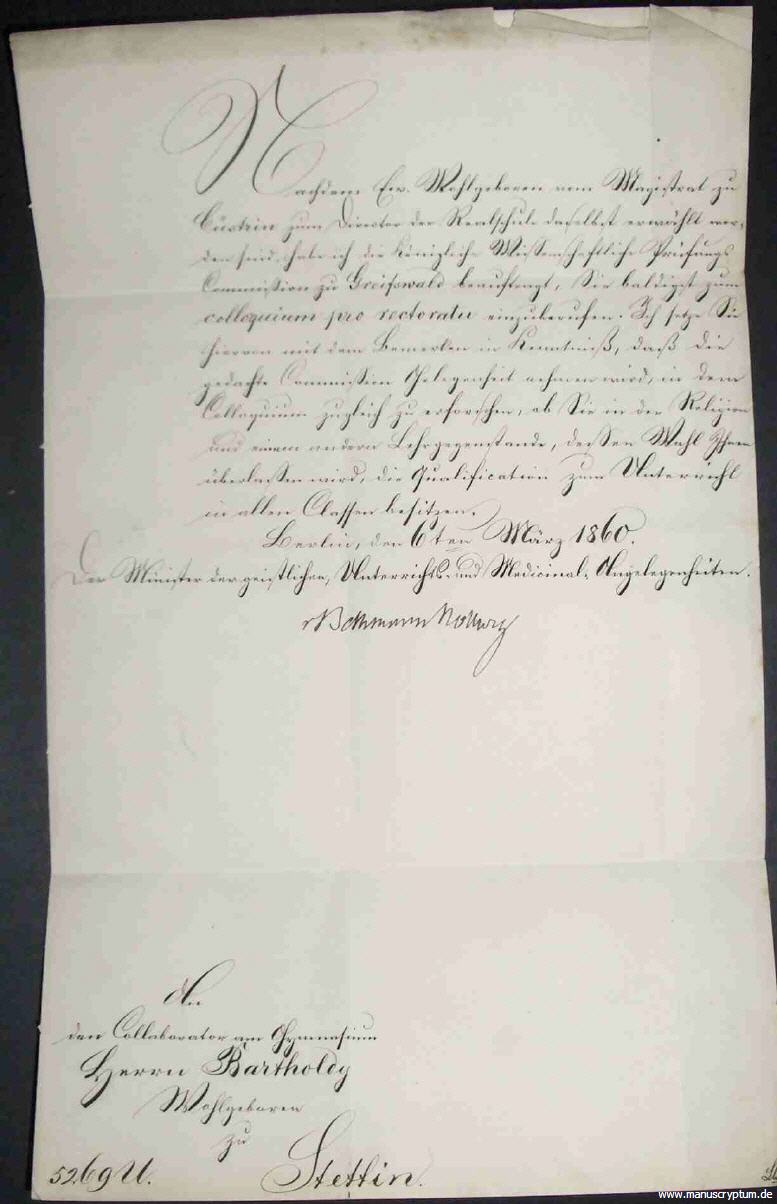 Nachdem Ew. Wohlgeboren vom Magistrat zu
Cüstrin zum Director der Realschule daselbst erwählt wor-
den sind, habe ich die Königliche Wissenschaftliche Prüfungs
Commission zu Greifswald beauftragt, Sie baldigst zum
colloquium pro rectoratu einzuberufen. Ich setze Sie
hiervon mit dem Bemerken in Kenntniß, daß die
gedachte Commission Gelegenheit nehmen wird, in dem
Colloquium zugleich zu erforschen, ob Sie in der Religion
und einem andern Lehrgegenstande, dessen Wahl Ihnen
überlassen wird, die Qualification zum Unterricht
in allen Classen besitzen.
Berlin, den 6ten März 1860.
Der Minister der geistlichen, Unterrichts- und Medicinal-Angelegenheiten.
vBethmann Hollweg
An
den Collaborator am Gymnasium
Herrn Bartholdy
Wohlgeboren
zu
Stettin.
5269 U.
www.manuscryptum.de